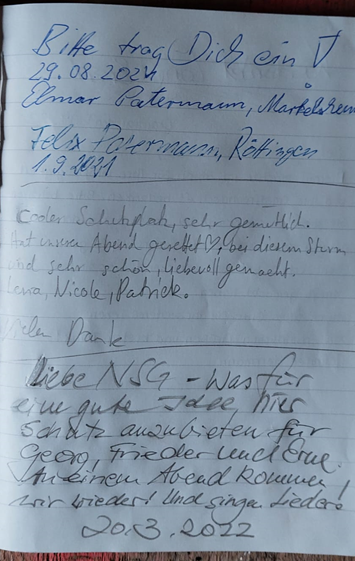 Bitte trag Dich ein
29.08.2021
Elmar Patermann, Markelsheim
Felix Patermann, Röttingen
1.9.2021
Cooler Schutzplatz, sehr gemütlich.
Hat unseren Abend gerettet bei diesem Sturm
und sehr schön, liebevoll gemacht.
Nicole, Patrick.
Vielen Dank
Liebe NSG - Was für
eine gute Idee, hier
Schutz anzubieten für
Georg, Frieder und
An einem Abend kommen
wir wieder! Und singen Lieder!
20.3.2022